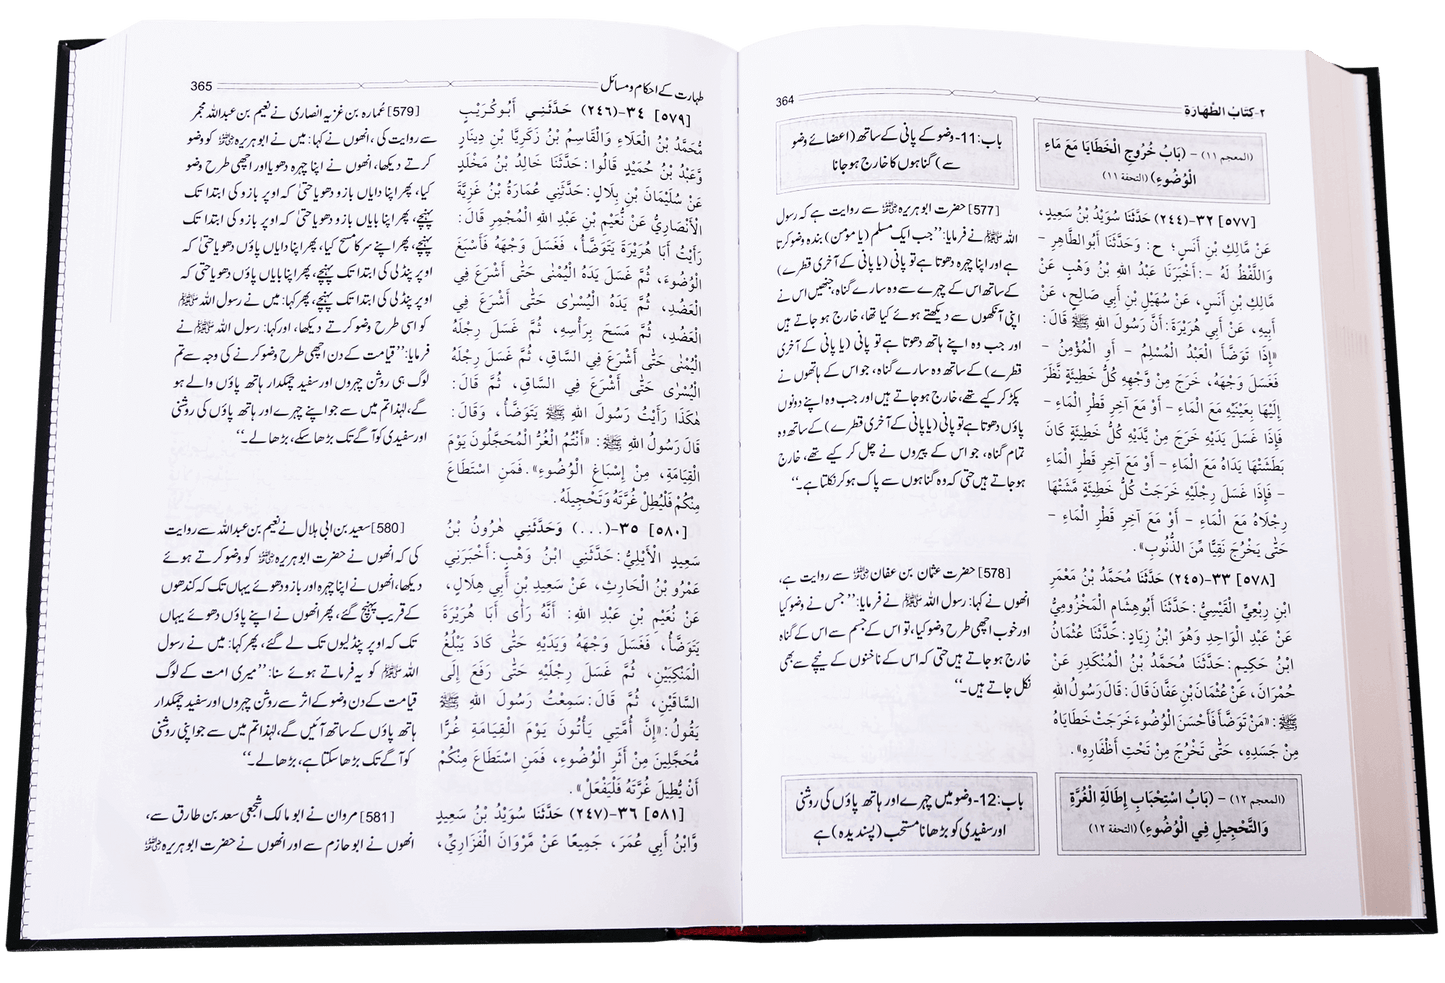 ٢-كتاب الطهارة
364
(المعجم ١١) - (بَابُ خُرُوجِ الْخَطَايَا مَعَ مَاءِ
الْوُضُوءِ) (التحفة ١١)
[٥٧٧] ٣٢-(٢٤٤) حَدَّثَنَا سُوَيْدُ بْنُ سَعِيدٍ،
عَنْ مَالِكِ بْنِ أَنَسٍ؛ ح: وَحَدَّثَنَا أَبُو الطَّاهِرِ -
وَاللَّفْظُ لَهُ -: أَخْبَرَنَا عَبْدُ اللهِ بْنُ وَهْبٍ عَنْ
مَالِكِ بْنِ أَنَسٍ، عَنْ سُهَيْلِ بْنِ أَبِي صَالِحٍ، عَنْ
أَبِيهِ، عَنْ أَبِي هُرَيْرَةَ: أَنَّ رَسُولَ اللهِ ﷺ قَالَ:
«إِذَا تَوَضَّأَ الْعَبْدُ الْمُسْلِمُ - أَوِ الْمُؤْمِنُ -
فَغَسَلَ وَجْهَهُ، خَرَجَ مِنْ وَّجْهِهِ كُلُّ خَطِيئَةٍ نَّظَرَ
إِلَيْهَا بِعَيْنَيْهِ مَعَ الْمَاءِ - أَوْ مَعَ آخِرِ قَطْرِ الْمَاءِ -
فَإِذَا غَسَلَ يَدَيْهِ خَرَجَ مِنْ يَّدَيْهِ كُلُّ خَطِيئَةٍ كَانَ
بَطَشَتْهَا يَدَاهُ مَعَ الْمَاءِ - أَوْ مَعَ آخِرِ قَطْرِ الْمَاءِ
- فَإِذَا غَسَلَ رِجْلَيْهِ خَرَجَتْ كُلُّ خَطِيئَةٍ مَّشَتْهَا
رِجْلَاهُ مَعَ الْمَاءِ - أَوْ مَعَ آخِرِ قَطْرِ الْمَاءِ -
حَتَّى يَخْرُجَ نَقِيًّا مِّنَ الذُّنُوبِ».
[٥٧٨] ٣٣-(٢٤٥) حَدَّثَنَا مُحَمَّدُ بْنُ مَعْمَرِ
ابْنِ رِبْعِيٍّ الْقَيْسِيُّ: حَدَّثَنَا أَبُو هِشَامٍ الْمَخْزُومِيُّ
عَنْ عَبْدِ الْوَاحِدِ وَهُوَ ابْنُ زِيَادٍ: حَدَّثَنَا عُثْمَانُ
ابْنُ حَكِيمٍ: حَدَّثَنَا مُحَمَّدُ بْنُ الْمُنْكَدِرِ عَنْ
حُمْرَانَ، عَنْ عُثْمَانَ بْنِ عَفَّانَ قَالَ: قَالَ رَسُولُ اللهِ
ﷺ: «مَنْ تَوَضَّأَ فَأَحْسَنَ الْوُضُوءَ خَرَجَتْ خَطَايَاهُ
مِنْ جَسَدِهِ، حَتَّى تَخْرُجَ مِنْ تَحْتِ أَظْفَارِهِ».
(المعجم ١٢) - (بَابُ اسْتِحْبَابِ إِطَالَةِ الْغُرَّةِ
وَالتَّحْجِيلِ فِي الْوُضُوءِ) (التحفة ١٢)
باب:11-وضو کے پانی کے ساتھ (اعضائے وضو
سے) گناہوں کا خارج ہو جانا
[577] حضرت ابوہریرہ رضی اللہ عنہ سے روایت ہے کہ رسول
اللہ ﷺ نے فرمایا: ’’جب ایک مسلم (یا مومن) بندہ وضو کرتا
ہے اور اپنا چہرہ دھوتا ہے تو پانی (یا پانی کے آخری قطرے)
کے ساتھ اس کے چہرے سے وہ سارے گناہ، جنھیں اس نے
اپنی آنکھوں سے دیکھتے ہوئے کیا تھا، خارج ہو جاتے ہیں
اور جب وہ اپنے ہاتھ دھوتا ہے تو پانی (یا پانی کے آخری
قطرے) کے ساتھ وہ سارے گناہ، جو اس کے ہاتھوں نے
پکڑ کر کیے تھے، خارج ہو جاتے ہیں اور جب وہ اپنے دونوں
پاؤں دھوتا ہے تو پانی (یا پانی کے آخری قطرے) کے ساتھ وہ
تمام گناہ، جو اس کے پیروں نے چل کر کیے تھے، خارج
ہو جاتے ہیں حتی کہ وہ گناہوں سے پاک ہو کر نکلتا ہے۔‘‘
[578] حضرت عثمان بن عفان رضی اللہ عنہ سے روایت ہے،
انھوں نے کہا: رسول اللہ ﷺ نے فرمایا: ’’جس نے وضو کیا
اور خوب اچھی طرح وضو کیا، تو اس کے جسم سے اس کے گناہ
خارج ہو جاتے ہیں حتی کہ اس کے ناخنوں کے نیچے سے بھی
نکل جاتے ہیں۔‘‘
باب:12-وضو میں چہرے اور ہاتھ پاؤں کی روشنی
اور سفیدی کو بڑھانا مستحب (پسندیدہ) ہے
طہارت کے احکام و مسائل
365
[٥٧٩] ٣٤-(٢٤٦) حَدَّثَنِي أَبُو كُرَيْبٍ
مُّحَمَّدُ بْنُ الْعَلَاءِ وَالْقَاسِمُ بْنُ زَكَرِيَّا بْنِ دِينَارٍ
وَّعَبْدُ بْنُ حُمَيْدٍ قَالُوا: حَدَّثَنَا خَالِدُ بْنُ مَخْلَدٍ
عَنْ سُلَيْمَانَ بْنِ بِلَالٍ: حَدَّثَنِي عُمَارَةُ بْنُ غَزِيَّةَ
الْأَنْصَارِيُّ عَنْ نُّعَيْمِ بْنِ عَبْدِ اللهِ الْمُجْمِرِ قَالَ:
رَأَيْتُ أَبَا هُرَيْرَةَ يَتَوَضَّأُ، فَغَسَلَ وَجْهَهُ فَأَسْبَغَ
الْوُضُوءَ، ثُمَّ غَسَلَ يَدَهُ الْيُمْنَى حَتَّى أَشْرَعَ فِي
الْعَضُدِ، ثُمَّ يَدَهُ الْيُسْرَى حَتَّى أَشْرَعَ فِي
الْعَضُدِ، ثُمَّ مَسَحَ بِرَأْسِهِ، ثُمَّ غَسَلَ رِجْلَهُ
الْيُمْنَى حَتَّى أَشْرَعَ فِي السَّاقِ، ثُمَّ غَسَلَ رِجْلَهُ
الْيُسْرَى حَتَّى أَشْرَعَ فِي السَّاقِ، ثُمَّ قَالَ:
هٰكَذَا رَأَيْتُ رَسُولَ اللهِ ﷺ يَتَوَضَّأُ، وَقَالَ:
قَالَ رَسُولُ اللهِ ﷺ: «أَنْتُمُ الْغُرُّ الْمُحَجَّلُونَ يَوْمَ
الْقِيَامَةِ، مِنْ إِسْبَاغِ الْوُضُوءِ». فَمَنِ اسْتَطَاعَ
مِنْكُمْ فَلْيُطِلْ غُرَّتَهُ وَتَحْجِيلَهُ.
[٥٨٠] ٣٥-(...) وَحَدَّثَنِي هٰرُونُ بْنُ
سَعِيدٍ الْأَيْلِيُّ: حَدَّثَنِي ابْنُ وَهْبٍ: أَخْبَرَنِي
عَمْرُو بْنُ الْحَارِثِ، عَنْ سَعِيدِ بْنِ أَبِي هِلَالٍ،
عَنْ نُعَيْمِ بْنِ عَبْدِ اللهِ: أَنَّهُ رَأَى أَبَا هُرَيْرَةَ
يَتَوَضَّأُ، فَغَسَلَ وَجْهَهُ وَيَدَيْهِ حَتَّى كَادَ يَبْلُغُ
الْمَنْكِبَيْنِ، ثُمَّ غَسَلَ رِجْلَيْهِ حَتَّى رَفَعَ إِلَى
السَّاقَيْنِ، ثُمَّ قَالَ: سَمِعْتُ رَسُولَ اللهِ ﷺ
يَقُولُ: «إِنَّ أُمَّتِي يَأْتُونَ يَوْمَ الْقِيَامَةِ غُرًّا
مُّحَجَّلِينَ مِنْ أَثَرِ الْوُضُوءِ، فَمَنِ اسْتَطَاعَ مِنْكُمْ
أَنْ يُّطِيلَ غُرَّتَهُ فَلْيَفْعَلْ».
[٥٨١] ٣٦-(٢٤٧) حَدَّثَنَا سُوَيْدُ بْنُ سَعِيدٍ
وَّابْنُ أَبِي عُمَرَ، جَمِيعًا عَنْ مَّرْوَانَ الْفَزَارِيِّ،
[579] عُمارہ بن غزیہ انصاری نے نعیم بن عبداللہ مجمر
سے روایت کی، انھوں نے کہا: میں نے ابوہریرہ رضی اللہ عنہ کو وضو
کرتے دیکھا، انھوں نے اپنا چہرہ دھویا اور اچھی طرح وضو
کیا، پھر اپنا دایاں بازو دھویا حتی کہ اوپر بازو کی ابتدا تک
پہنچے، پھر اپنا بایاں بازو دھویا حتی کہ اوپر بازو کی ابتدا تک
پہنچے، پھر اپنے سر کا مسح کیا، پھر اپنا دایاں پاؤں دھویا حتی کہ
اوپر پنڈلی کی ابتدا تک پہنچے، پھر اپنا بایاں پاؤں دھویا حتی کہ
اوپر پنڈلی کی ابتدا تک پہنچے، پھر کہا: میں نے رسول اللہ ﷺ
کو اسی طرح وضو کرتے دیکھا، اور کہا: رسول اللہ ﷺ نے
فرمایا: ’’قیامت کے دن اچھی طرح وضو کرنے کی وجہ سے تم
لوگ ہی روشن چہروں اور سفید چمکدار ہاتھ پاؤں والے ہو
گے، لہٰذا تم میں سے جو اپنے چہرے اور ہاتھ پاؤں کی روشنی
اور سفیدی کو آگے تک بڑھا سکے، بڑھا لے۔‘‘
[580] سعید بن ابی ہلال نے نعیم بن عبداللہ سے روایت
کی کہ انھوں نے حضرت ابوہریرہ رضی اللہ عنہ کو وضو کرتے ہوئے
دیکھا، انھوں نے اپنا چہرہ اور بازو دھوئے یہاں تک کہ کندھوں
کے قریب پہنچ گئے، پھر انھوں نے اپنے پاؤں دھوئے یہاں
تک کہ اوپر پنڈلیوں تک لے گئے، پھر کہا: میں نے رسول
اللہ ﷺ کو یہ فرماتے ہوئے سنا: ’’میری امت کے لوگ
قیامت کے دن وضو کے اثر سے روشن چہروں اور سفید چمکدار
ہاتھ پاؤں کے ساتھ آئیں گے، لہٰذا تم میں سے جو اپنی روشنی
کو آگے تک بڑھا سکتا ہے، بڑھا لے۔‘‘
[581] مروان نے ابو مالک اشجعی سعد بن طارق سے،
انھوں نے ابو حازم سے اور انھوں نے حضرت ابوہریرہ رضی اللہ عنہ